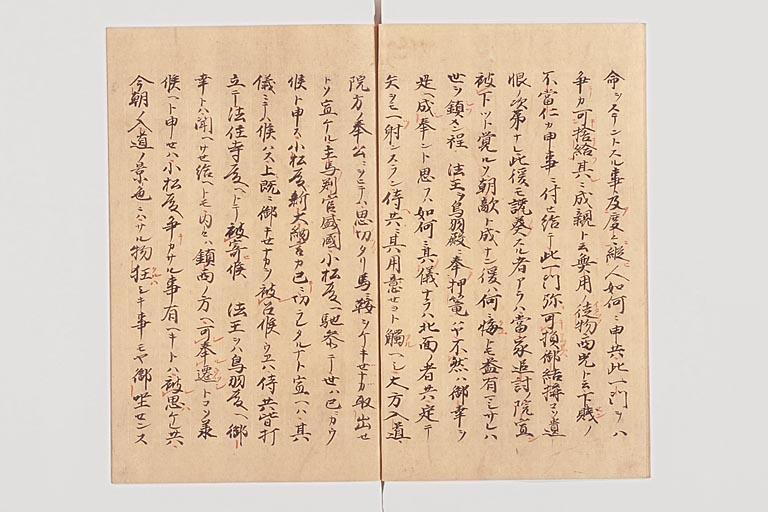 命ヲステントスル事及度々縦人如何ニ申共此一門ヲハ
争カ可捨給其ニ成親ト云無用ノ徒物西光ト云下賤ノ
不當仁カ申事ニ付セ給テ此一門弥可損御結搆コソ遺
恨ノ次第ナレ此後モ讒奏スル者アラハ當家追討ノ院宣
被下ツト覚ルソ朝敵ト成ナン後ハ何ニ悔トモ益有ヘシサレハ
世ヲ鎮メン程法王ヲ鳥羽殿ヘ奉押篭ヘシヤ不然ハ御幸ヲ
是ヘ成奉ント思フハ如何ニ其儀ナラハ北面ノ者共ハ定テ
矢ヲモ一射ンスラン侍共ニ其用意セヨト觸ヘシ大方入道
院方ノ奉公ニヲヰテハ思切タリ馬ニ鞍ヲケキセナカ取出セ
トソ宣ケル主馬判官盛國小松殿ヘ馳参テ世ハ已ニカウ
候ト申ス小松殿新大納言カ已ニ切ラレタルナト宣ヘハ其
儀ニテハ候ハス上既ニ御キセナカヲ被召候ウエハ侍共皆打
立テ法住寺殿ヘトテ被寄候 法王ヲハ鳥羽殿ヘ御
幸トハ聞ヘサセ給ヘトモ内々ハ鎮西ノ方ヘ可奉遷トコソ承
候ヘト申セハ小松殿争カサル事有ヘキトハ被思ケレ共
今朝ノ入道ノ景色ニハサル物狂シキ事モヤ御坐センス